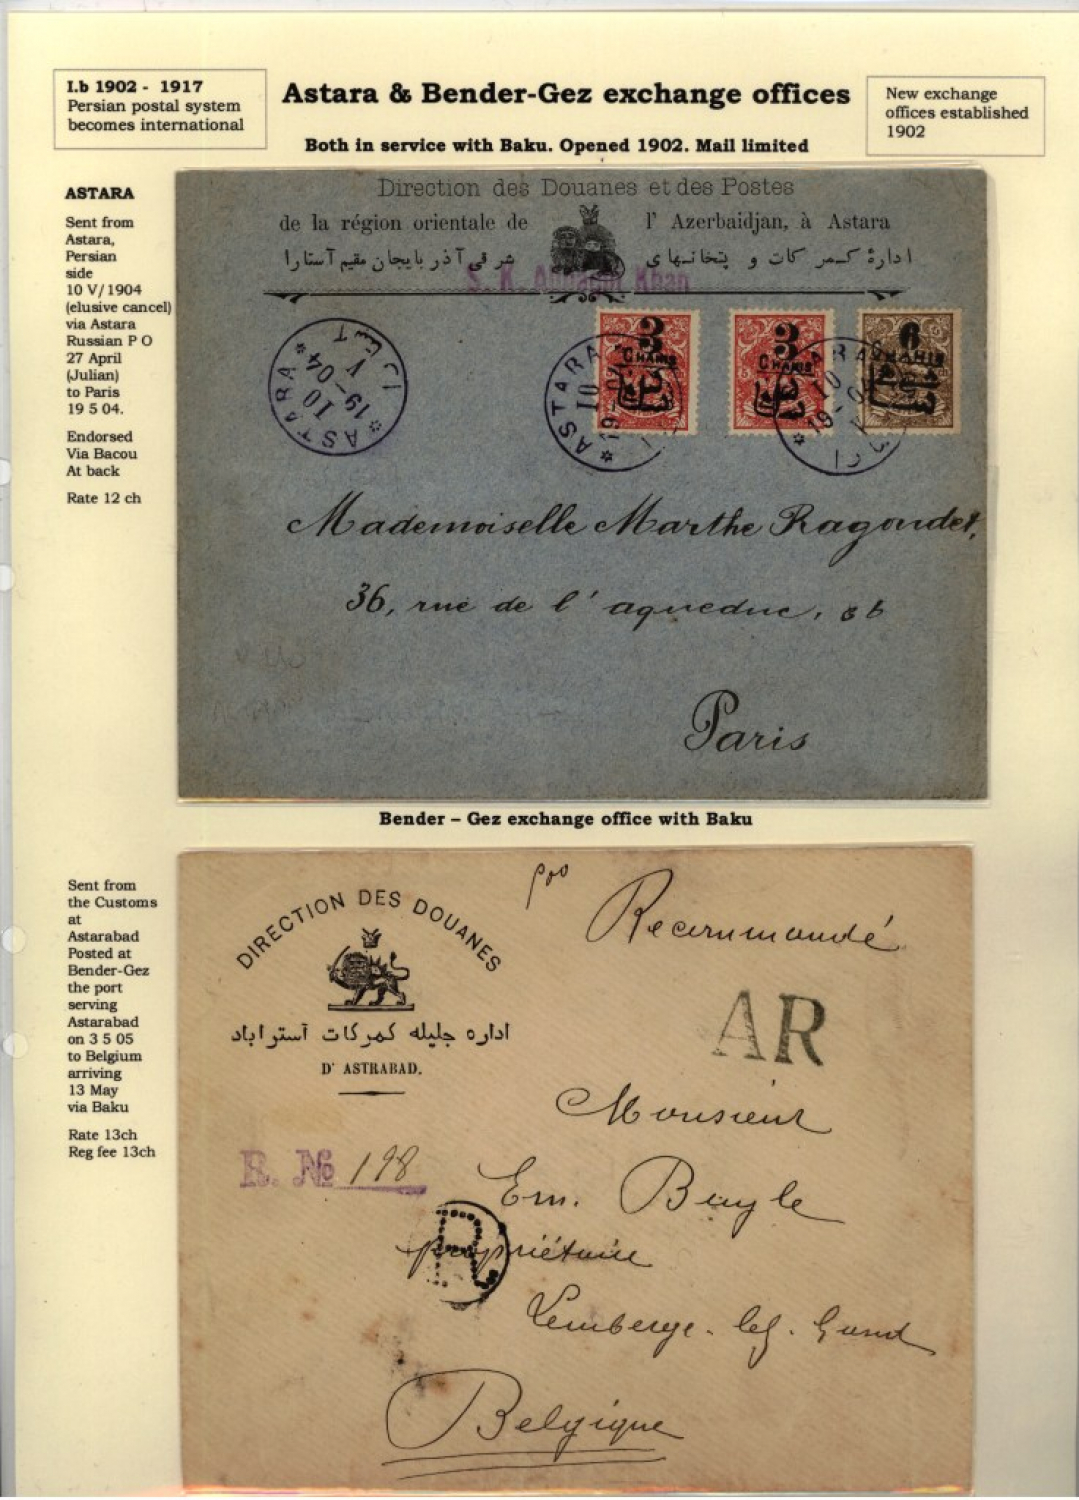 I.b 1902 - 1917
Persian postal system
becomes international
Astara & Bender-Gez exchange offices
Both in service with Baku. Opened 1902. Mail limited
New exchange
offices established
1902
ASTARA
Sent from
Astara,
Persian
side
10 V/1904
(elusive cancel)
via Astara
Russian P O
27 April
(Julian)
to Paris
19 5 04.
Endorsed
Via Bacou
At back
Rate 12 ch
Direction des Douanes et des Postes
de la région orientale de l' Azerbaidjan, à Astara
ادارهٔ کمرکات و پتخانهای شرقی آذربایجان مقیم آستارا
Khan
3
CHAHIS
3
CHAHIS
6
CHAHIS
ASTARA
10
V
19-04
ASTARA
10
19-04
10
19-04
Mademoiselle Marthe Ragondet,
36, rue de l'aqueduc, 36
Paris
Bender – Gez exchange office with Baku
Sent from
the Customs
at
Astarabad
Posted at
Bender-Gez
the port
serving
Astarabad
on 3 5 05
to Belgium
arriving
13 May
via Baku
Rate 13ch
Reg fee 13ch
DIRECTION DES DOUANES
اداره جلیله کمرکات آستراباد
D' ASTRABAD.
Recommandé
AR
Monsieur
R. № 198
Em. Buyle
R
propriétaire
Lemberge. lez. Gand
Belgique